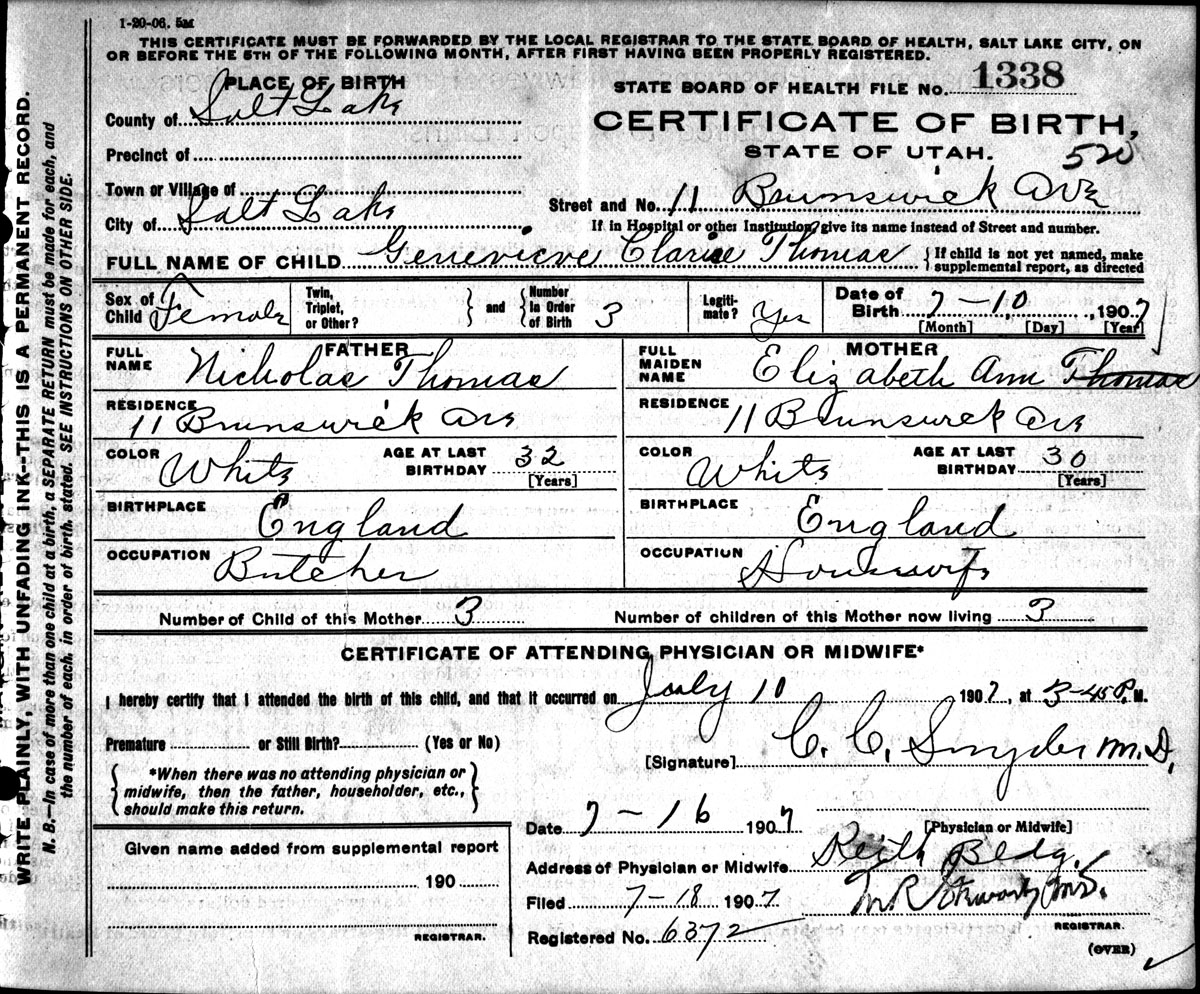 1-20-06. 5M
THIS CERTIFICATE MUST BE FORWARDED BY THE LOCAL REGISTRAR TO THE STATE BOARD OF HEALTH, SALT LAKE CITY, ON
OR BEFORE THE 5TH OF THE FOLLOWING MONTH, AFTER FIRST HAVING BEEN PROPERLY REGISTERED.
PLACE OF BIRTH
STATE BOARD OF HEALTH FILE No. 1338
County of Salt Lake
CERTIFICATE OF BIRTH,
Precinct of
STATE OF UTAH. 520
Town or Village of
City of Salt Lake
Street and No. 11 Brunswick Ave
If in Hospital or other Institution, give its name instead of Street and number.
FULL NAME OF CHILD Genevieve Clarice Thomas {If child is not yet named, make
supplemental report, as directed
Sex of Child Female
Twin, Triplet, or Other? } and { Number In Order of Birth 3
Legiti-mate? Yes
Date of Birth 7-10, 1907
[Month] [Day] [Year]
FATHER
FULL NAME Nicholas Thomas
MOTHER
FULL MAIDEN NAME Elizabeth Ann Thomas
RESIDENCE 11 Brunswick Ave
RESIDENCE 11 Brunswick Ave
COLOR White AGE AT LAST BIRTHDAY 32 [Years]
COLOR White AGE AT LAST BIRTHDAY 30 [Years]
BIRTHPLACE England
BIRTHPLACE England
OCCUPATION Butcher
OCCUPATION Housewife
Number of Child of this Mother 3 Number of children of this Mother now living 3
CERTIFICATE OF ATTENDING PHYSICIAN OR MIDWIFE*
I hereby certify that I attended the birth of this child, and that it occurred on July 10 1907, at 3-45 P. M.
Premature or Still Birth? (Yes or No)
[Signature] C. C. Snyder M. D.
{*When there was no attending physician or
midwife, then the father, householder, etc.,
should make this return.}
Date 7-16 1907
[Physician or Midwife]
Given name added from supplemental report
Address of Physician or Midwife Keith Bldg.
190
Filed 7-18 1907 M R Stewart
REGISTRAR.
Registered No. 6372
REGISTRAR.
(OVER)
WRITE PLAINLY, WITH UNFADING INK--THIS IS A PERMANENT RECORD.
N. B.—In case of more than one child at a birth, a SEPARATE RETURN must be made for each, and
the number of each, in order of birth, stated. SEE INSTRUCTIONS ON OTHER SIDE.